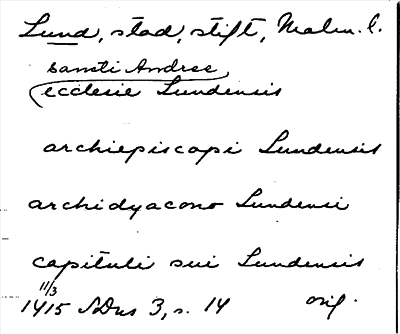 Lund, stad, stift, Malm. l.
sancti Andree
ecclesie Lundensis
archiepiscopi Lundensis
archidyacono Lundensi
capituli sui Lundensis
11/3
1415 SDns 3, s. 14 orig.